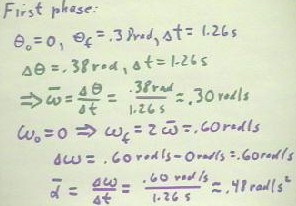 First phase:
θ₀=0, θf=.38rad, Δt=1.26s
Δθ=.38rad, Δt=1.26s
⇒ω̄=Δθ/Δt=.38rad/1.26s≈.30rad/s
ω₀=0 ⇒ ωf=2ω̄=.60rad/s
Δω=.60rad/s-0rad/s=.60rad/s
ᾱ=Δω/Δt=.60rad/s/1.26s≈.48rad/s²